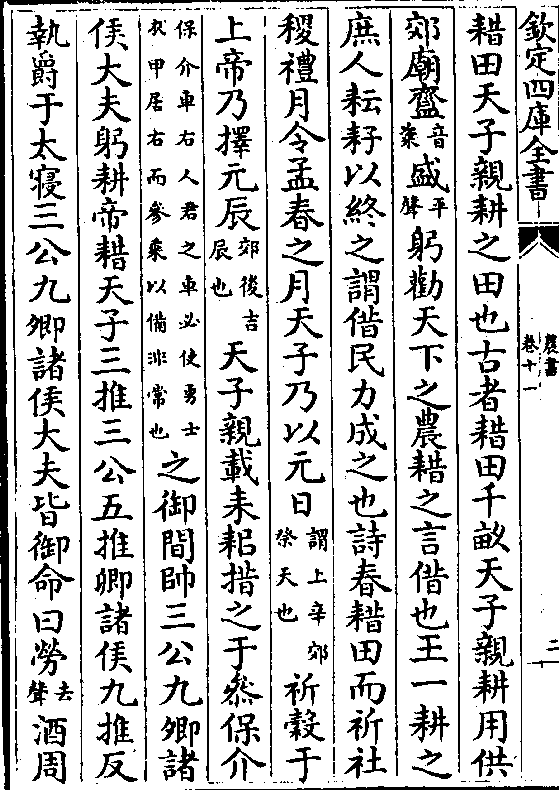 欽定四庫全書
農書
卷十一
二
耤田天子親耕之田也古者耤田千畝天子親耕用供
郊廟齍音粢盛平聲躬勸天下之農耤之言借也王一耕之
庶人耘耔以終之謂借民力成之也詩春耤田而祈社
稷禮月令孟春之月天子乃以元日謂上辛郊祭天也祈穀于
上帝乃擇元辰郊後吉辰也天子親載耒耜措之于叅保介
保介車右人君之車必使勇士衣甲居右而參乘以備非常也之御間帥三公九卿諸
侯大夫躬耕帝耤天子三推三公五推卿諸侯九推反
執爵于太寢三公九卿諸侯大夫皆御命曰勞去聲酒周